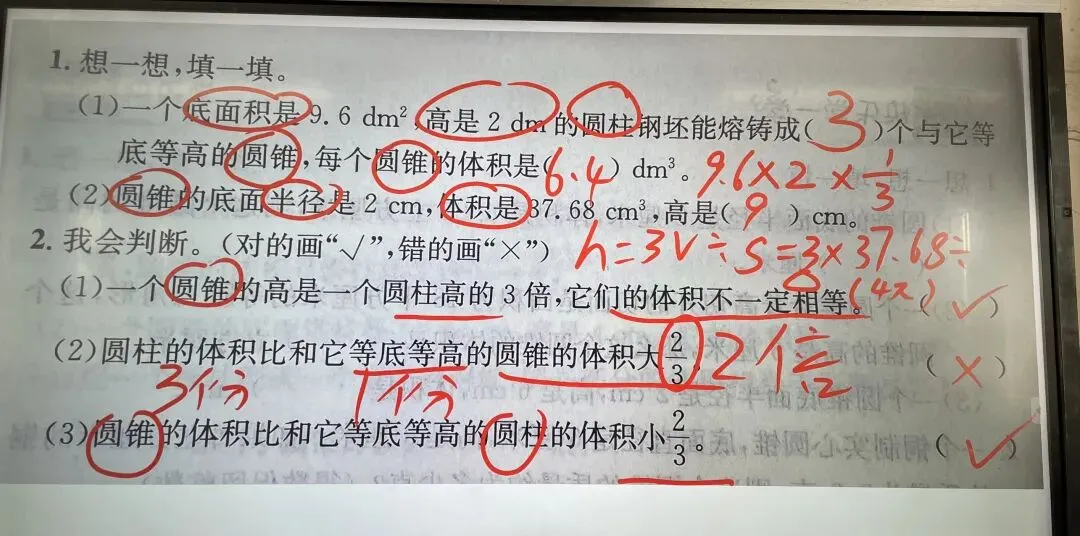 1. 想一想,填一填。
(1)一个底面积是9.6 dm²,高是2 dm的圆柱钢坯能熔铸成(3)个与它等
底等高的圆锥,每个圆锥的体积是(6.4)dm³。 9.6×2×1/3
(2)圆锥的底面半径是2 cm,体积是37.68 cm³,高是(9)cm。
2. 我会判断。(对的画“√”,错的画“×”) h=3V÷S=3×37.68÷
(4π)
(1)一个圆锥的高是一个圆柱高的3倍,它们的体积不一定相等。(√)
(2)圆柱的体积比和它等底等高的圆锥的体积大2/3。 2倍 (×)
3个份 1个份
(3)圆锥的体积比和它等底等高的圆柱的体积小2/3。 (√)